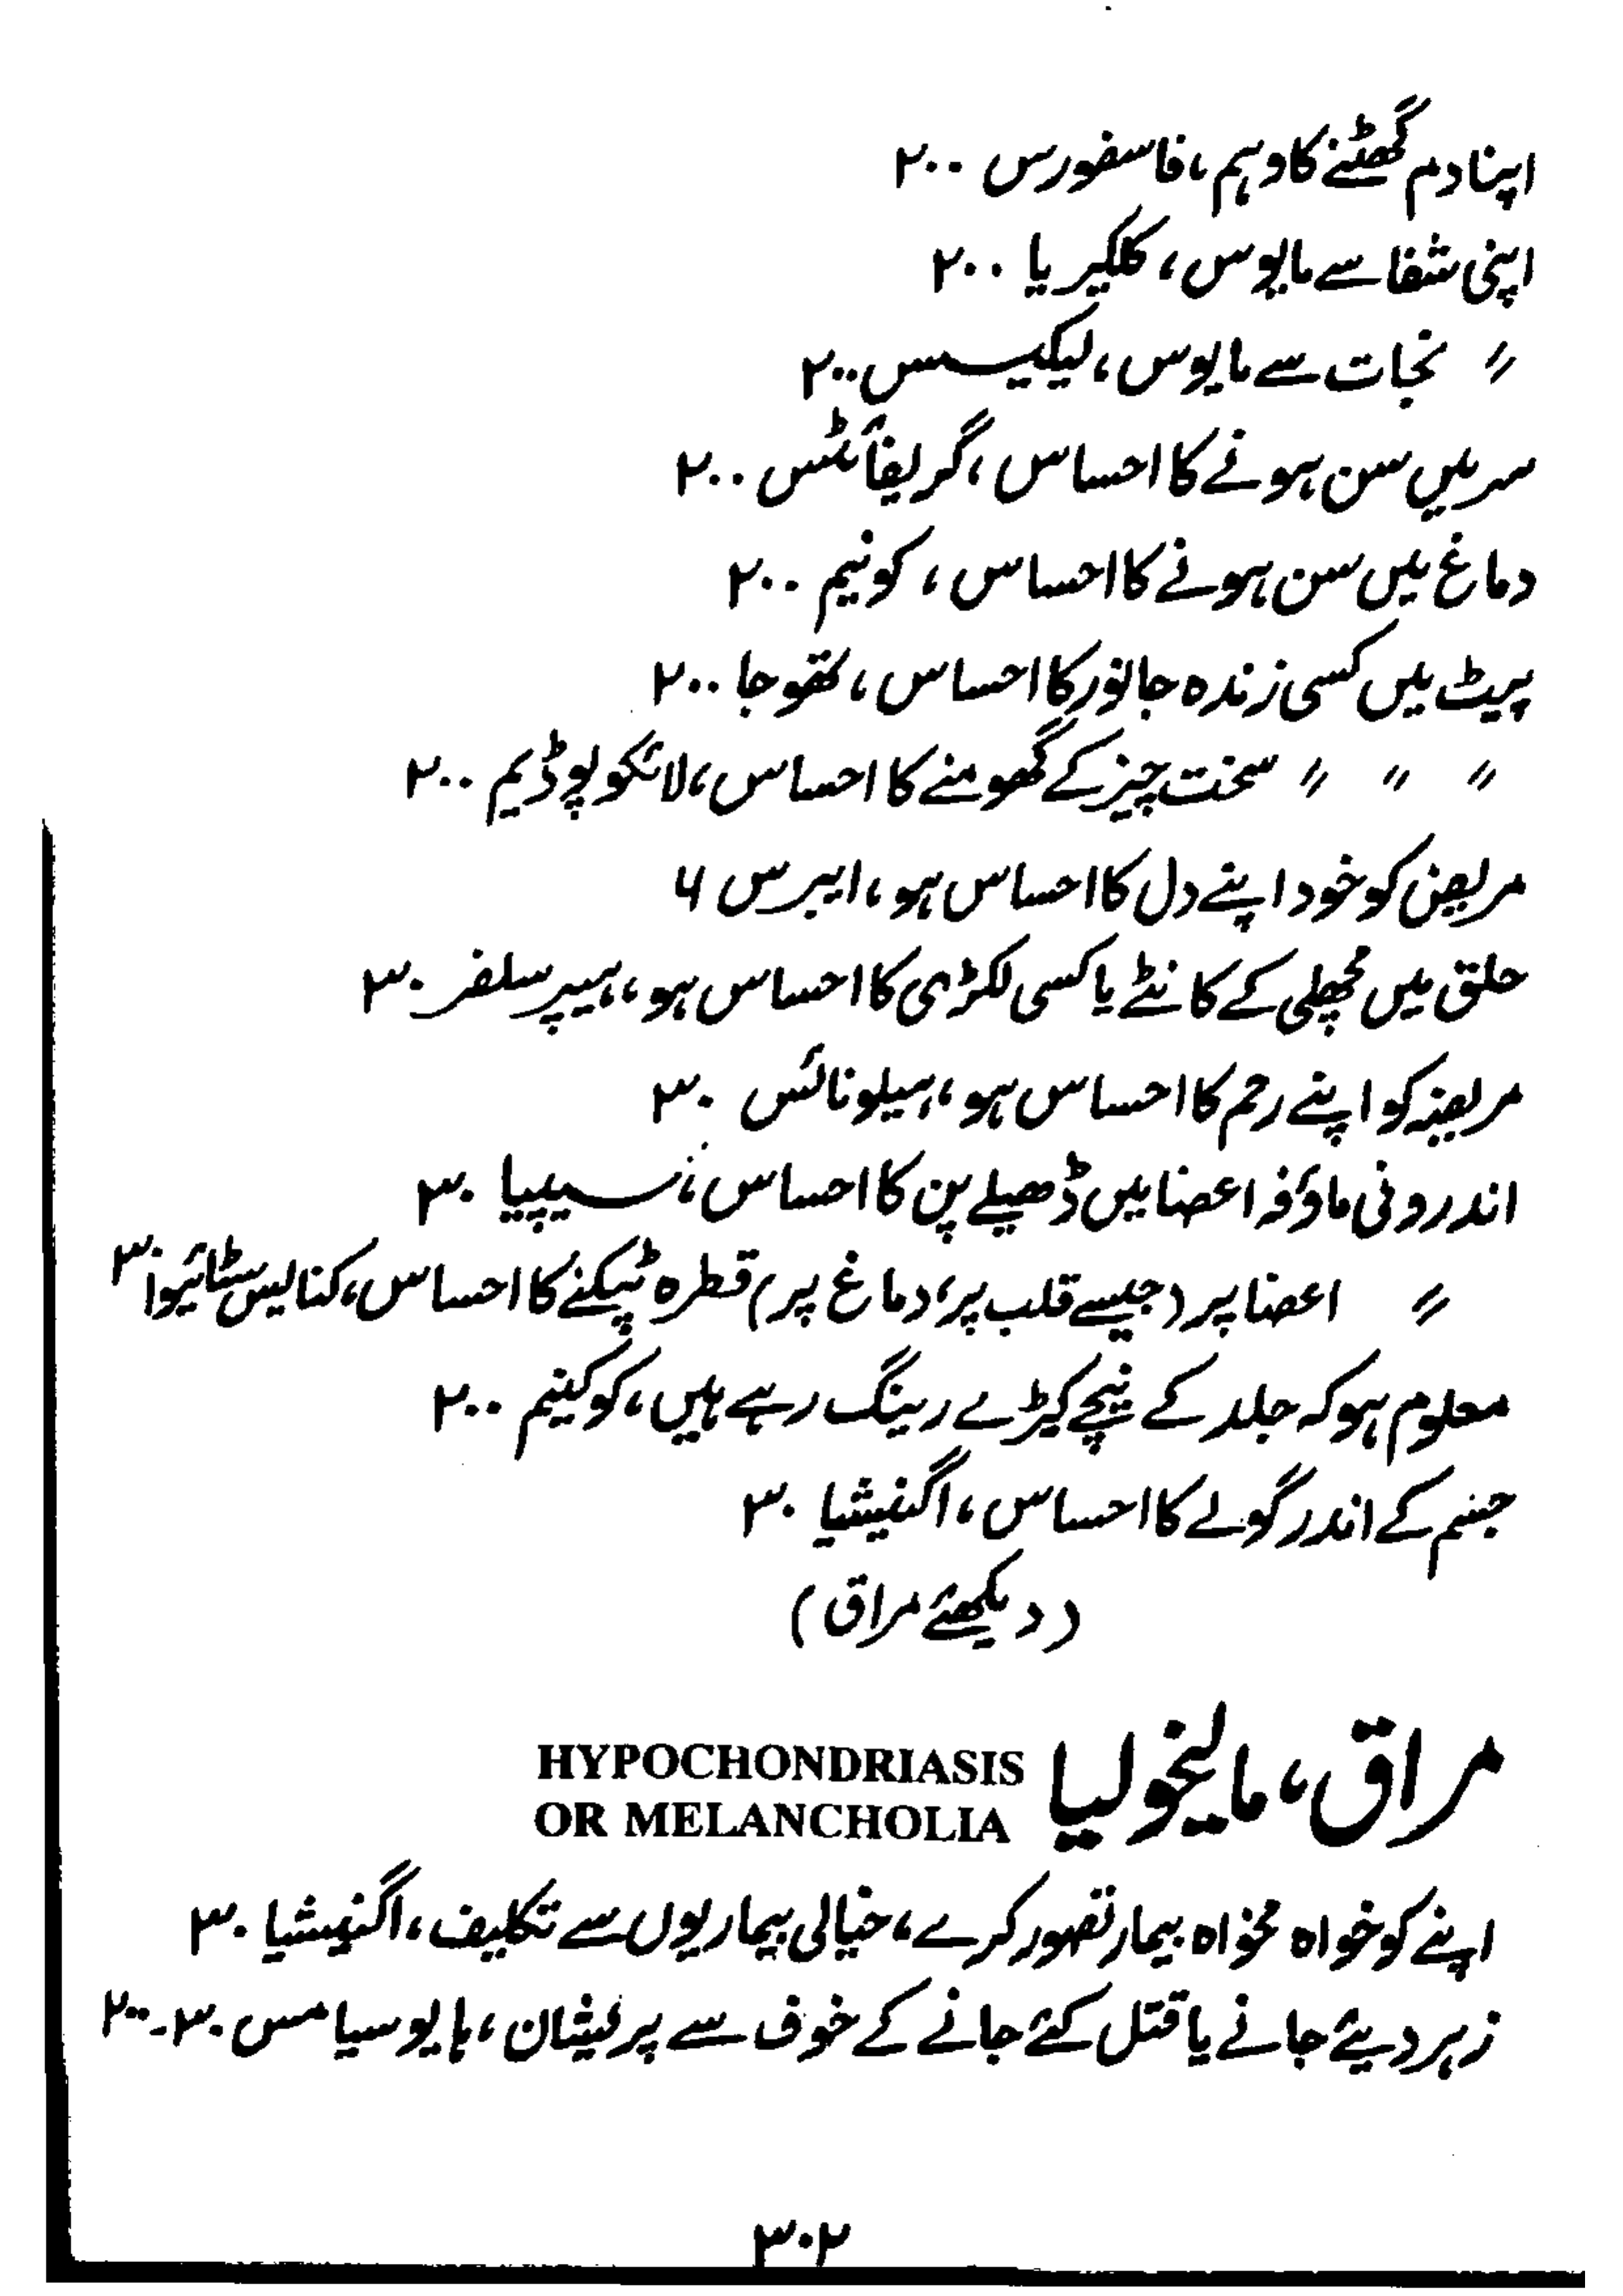 اپنا دم گھٹنے کا وہم، فاسفورس ۲۰۰
اپنی شفا سے مایوس، کلکیریا ۲۰۰
〃 نجات سے مایوس، لیکیسس ۲۰۰
سر میں سن ہونے کا احساس، گریفائٹس ۲۰۰
دماغ میں سن ہونے کا احساس، کونیم ۲۰۰
پیٹ میں کسی زندہ جانور کا احساس، تھوجا ۲۰۰
〃 〃 〃 سخت چیز کے گھومنے کا احساس، لائکوپوڈیم ۲۰۰
مریض کو خود اپنے دل کا احساس ہو، ایبرس ۶
حلق میں مچھلی کے کانٹے یا کسی لکڑی کا احساس ہو، ہیپر سلفر ۳۰
مریضہ کو اپنے رحم کا احساس ہو، ہیلونائس ۳۰
اندرونی ماؤفہ اعضا میں ڈھیلے پن کا احساس، سیپیا ۳۰
〃 اعضا پر (جیسے قلب پر، دماغ پر) قطرہ ٹپکنے کا احساس، کنابیس سٹائیوا ۳۰
معلوم ہو کہ جلد کے نیچے کیڑے رینگ رہے ہیں، کوکینم ۲۰۰
جسم کے اندر گولے کا احساس، اگنیشیا ۳۰
(دیکھئے مراق)
مراق، مالیخولیا HYPOCHONDRIASIS
OR MELANCHOLIA
اپنے کو خواہ مخواہ بیمار تصور کرے، خیالی بیماریوں سے تکلیف، اگنیشیا ۳۰
زہر دیئے جانے یا قتل کئے جانے کے خوف سے پریشان، ہایوسیامس ۳۰۔۲۰۰
۳۰۲